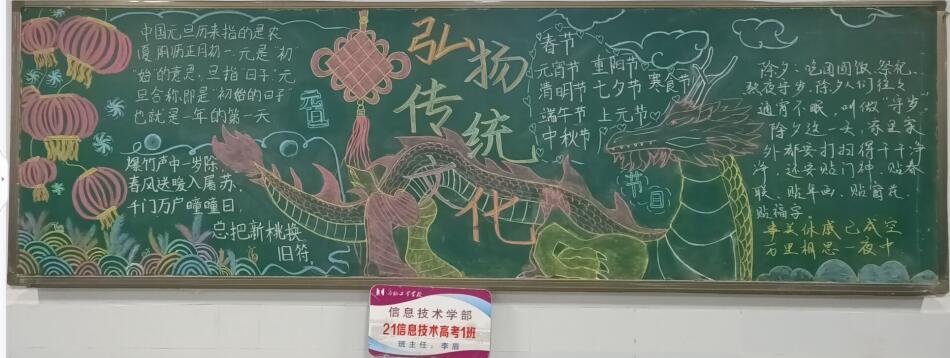 中国元旦历来指的是农
历正月初一.元是"初"
"始"的意思,旦指"日子"元
旦合称即是"初始的日子"
也就是一年的第一天
元旦
爆竹声中一岁除,
春风送暖入屠苏,
千门万户曈曈日,
总把新桃换
旧符。
弘扬
传统
文化
春节
元宵节 重阳节
清明节 七夕节 寒食节
端午节 上元节
中秋节
节日
除夕:吃团圆饭.祭祀.
熬夜守岁.除夕人们往々
通宵不眠,叫做"守岁.
除夕这一天,家里家
外都要打扫得干干净
净,还要贴门神.贴春
联.贴年画.贴窗花.
贴福字。
事关休戚已成空
万里相思一夜中
信息技术学部
21信息技术高考1班
班主任:李眉